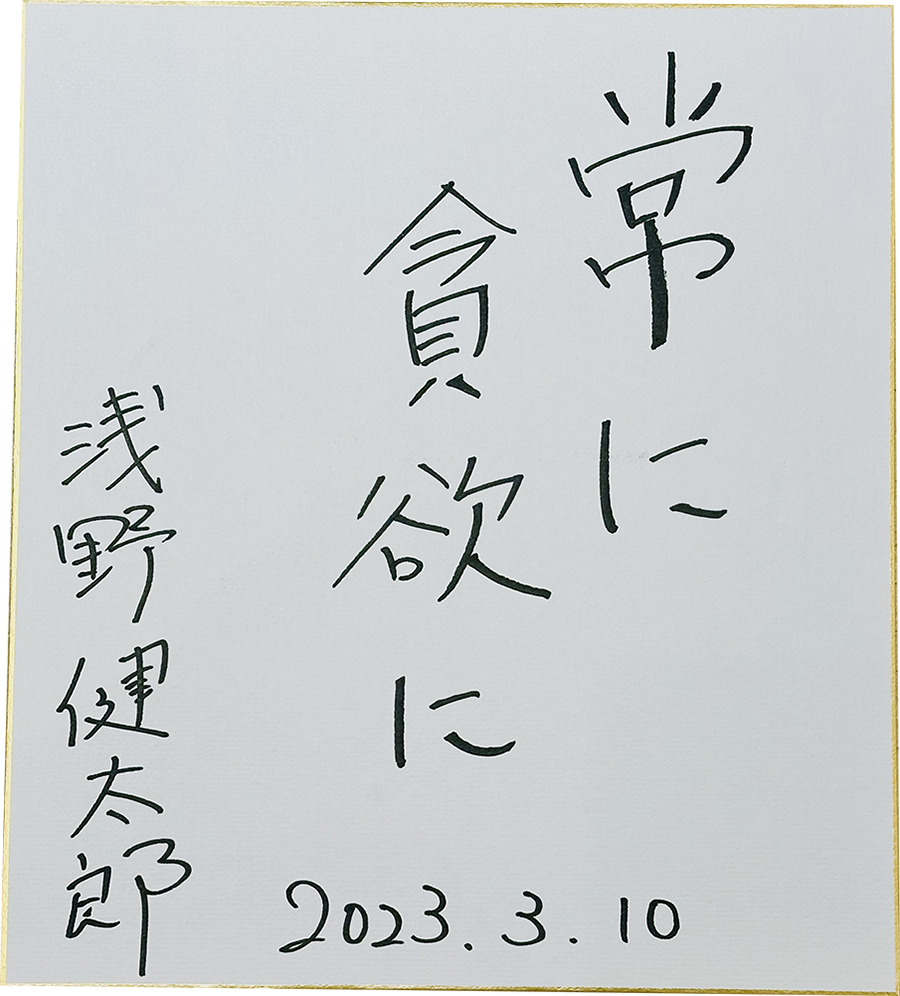 常に
貪欲に
浅野健太郎
2023.3.10